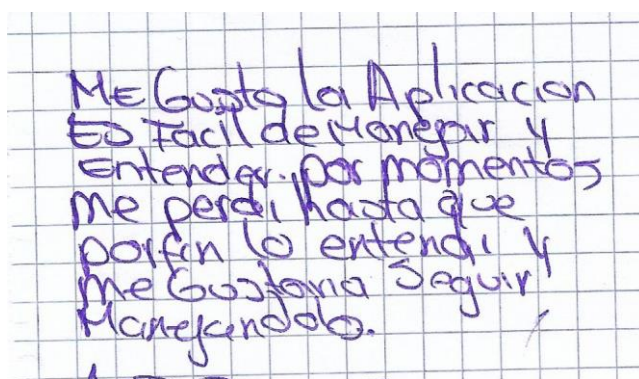 Me Gusto la Aplicacion
Es Facil de Manejar y
Entender. por momentos
me perdi hasta que
porfin lo entendi y
me Gustaria Seguir
Manejandolo.